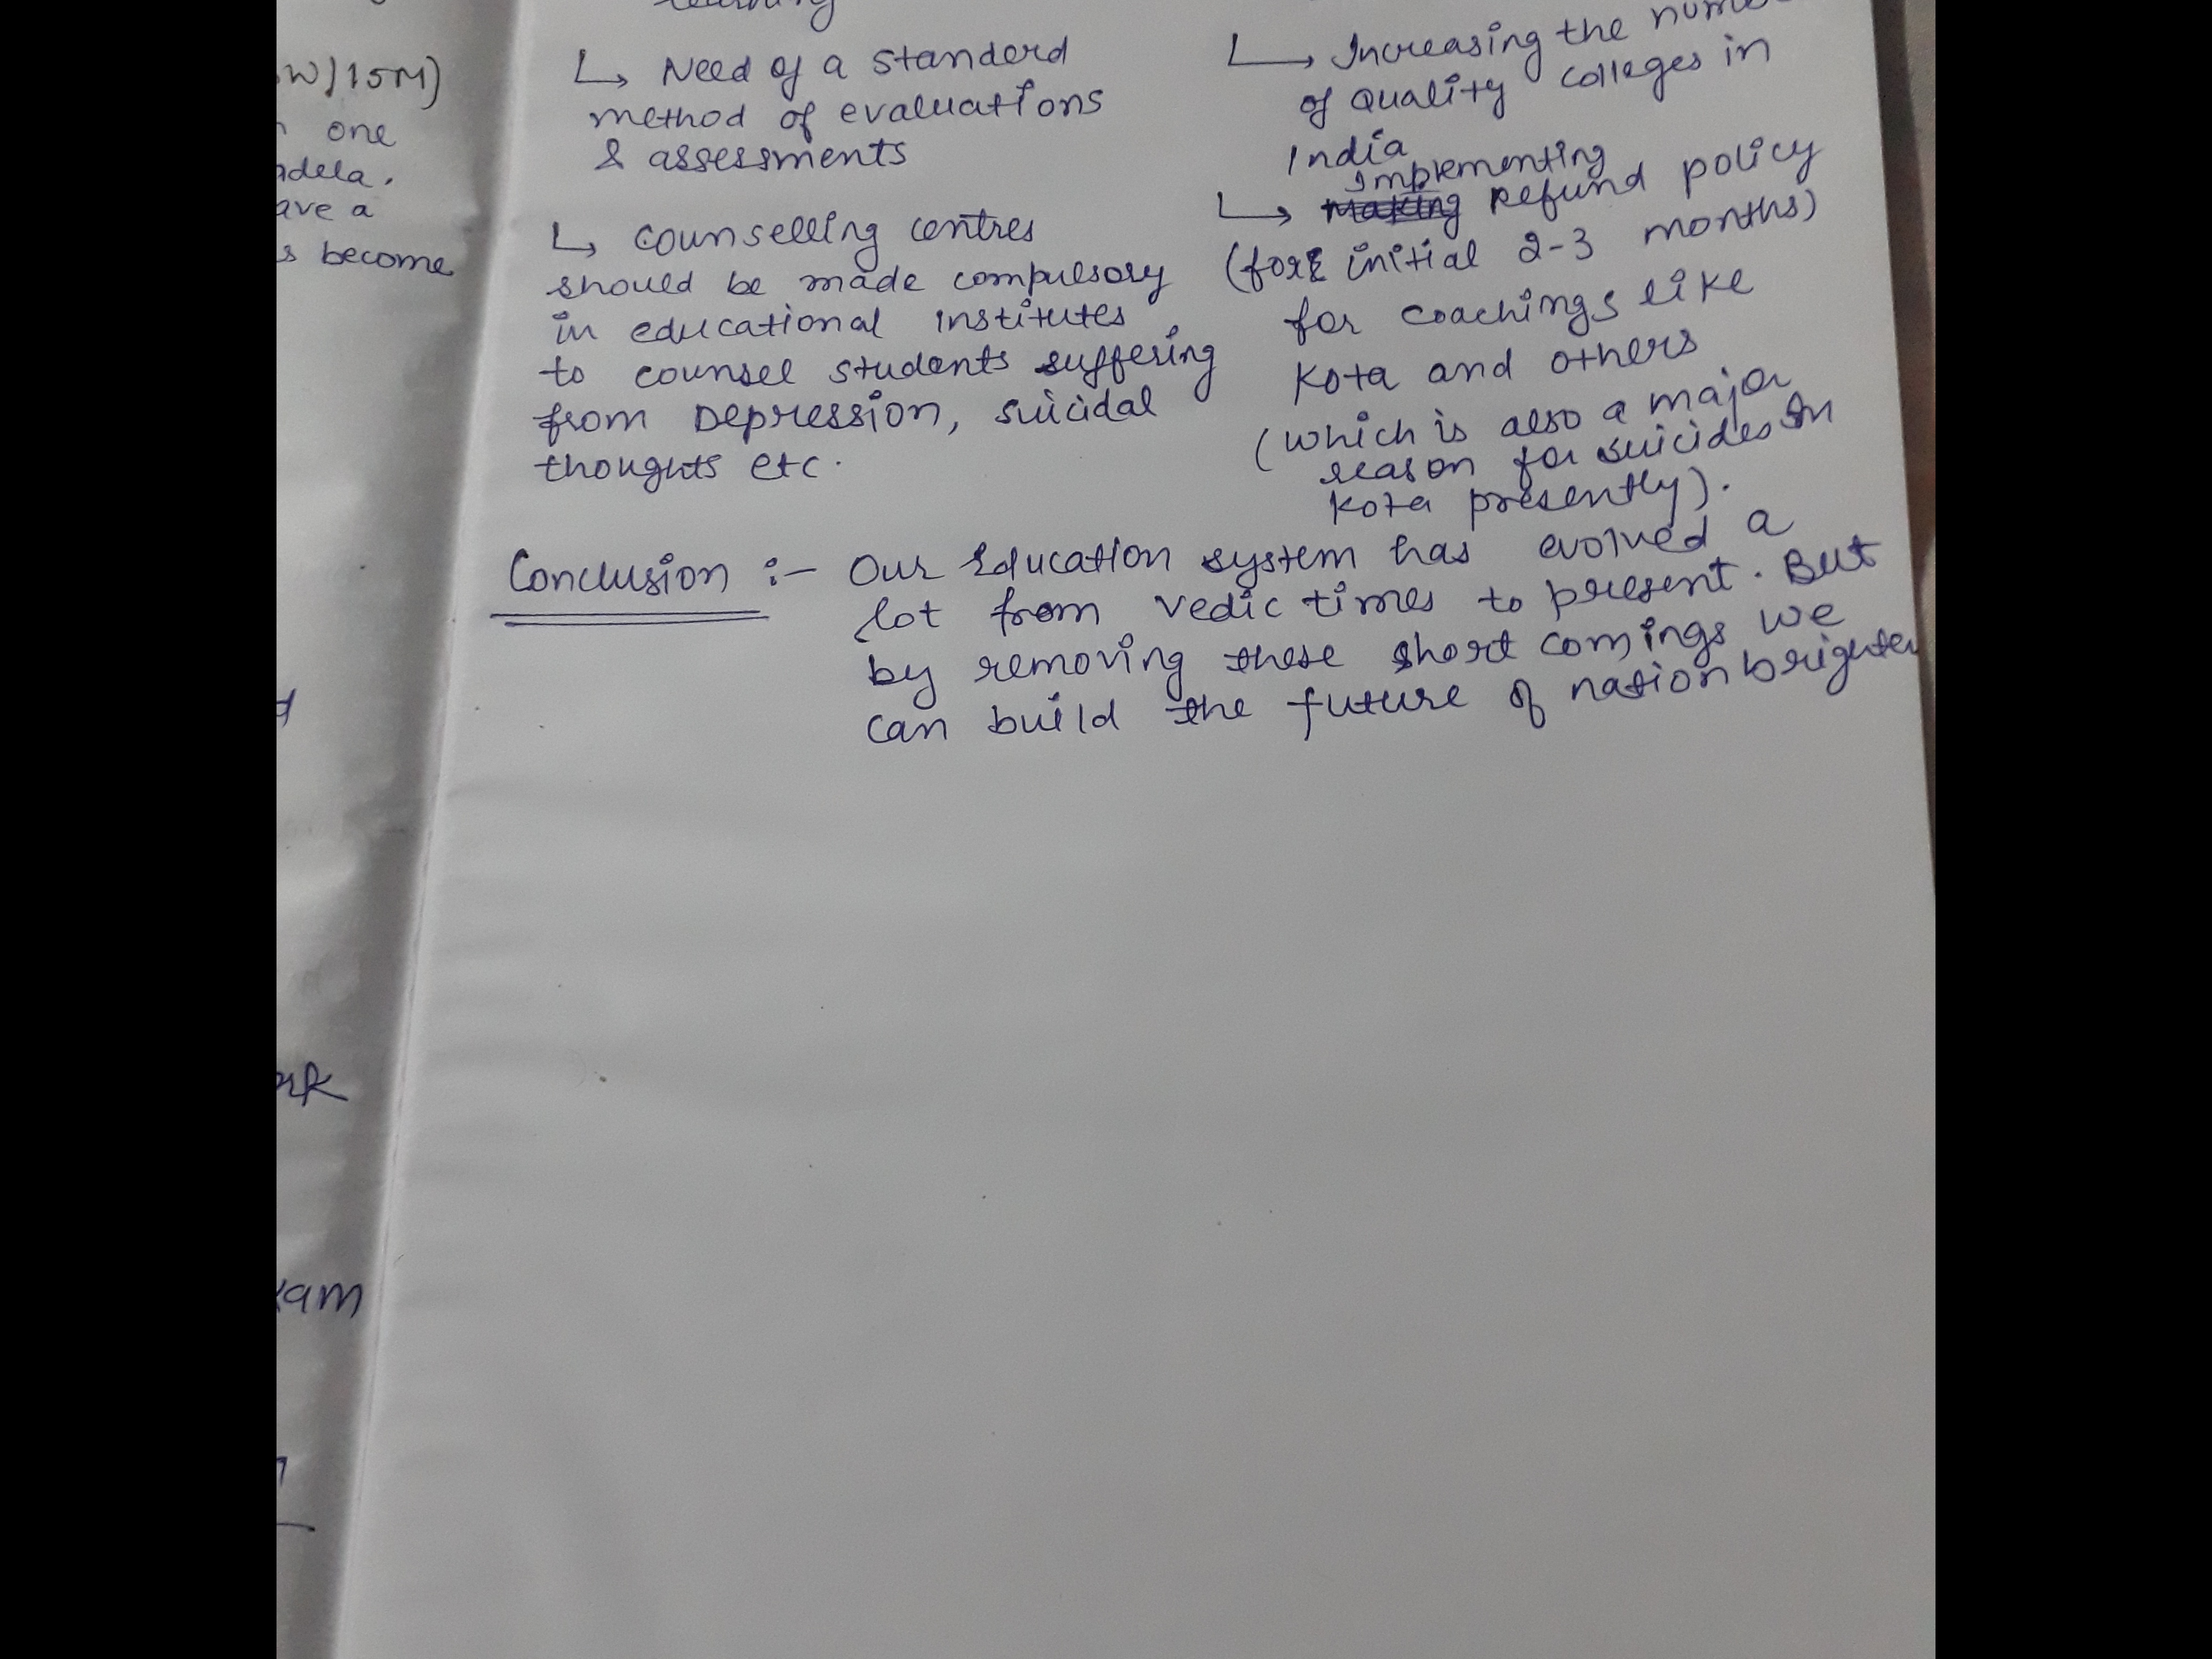 learning
↳ Need of a standerd
method of evaluations
& assessments
↳ counselling centres
should be made compulsory
in educational institutes
to counsel students suffering
from Depression, suicidal
thoughts etc.
↳ Increasing the
of Quality colleges in
India
Implementing
↳ Making Refund policy
(for initial 2-3 months)
for coachings like
Kota and others
(which is also a major
reason for suicides in
Kota presently).
Conclusion :- Our Education system has evolved a
lot from vedic times to present. But
by removing these short comings we
can build the future of nation brighter
15M)
one
ave a
become